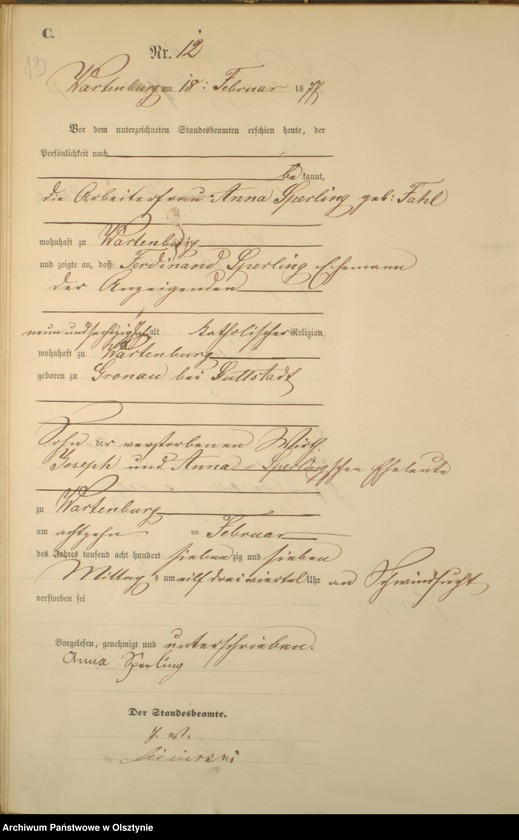 C.
13
Nr. 12
Wartenburg am 18: Februar 1877
Vor dem unterzeichneten Standesbeamten erschien heute, der
Persönlichkeit nach
be kannt,
die Arbeiterfrau Anna Sperling geb: Fahl
wohnhaft zu Wartenburg
und zeigte an, daß Ferdinand Sperling Ehemann
der Anzeigenden
neun und sechszig Jahr alt katholischer Religion
wohnhaft zu Wartenburg
geboren zu Gronau bei Guttstadt
Sohn der verstorbenen Wirth
Joseph und Anna Sperlingschen Eheleute
zu Wartenburg
am achtzehn ten Februar
des Jahres tausend acht hundert sieben zig und sieben
Mittag s um eilf dreiviertel Uhr an Schwindsucht
verstorben sei
Vorgelesen, genehmigt und unterschrieben.
Anna Sperling
Der Standesbeamte.
J. V.
Archiwum Państwowe w Olsztynie